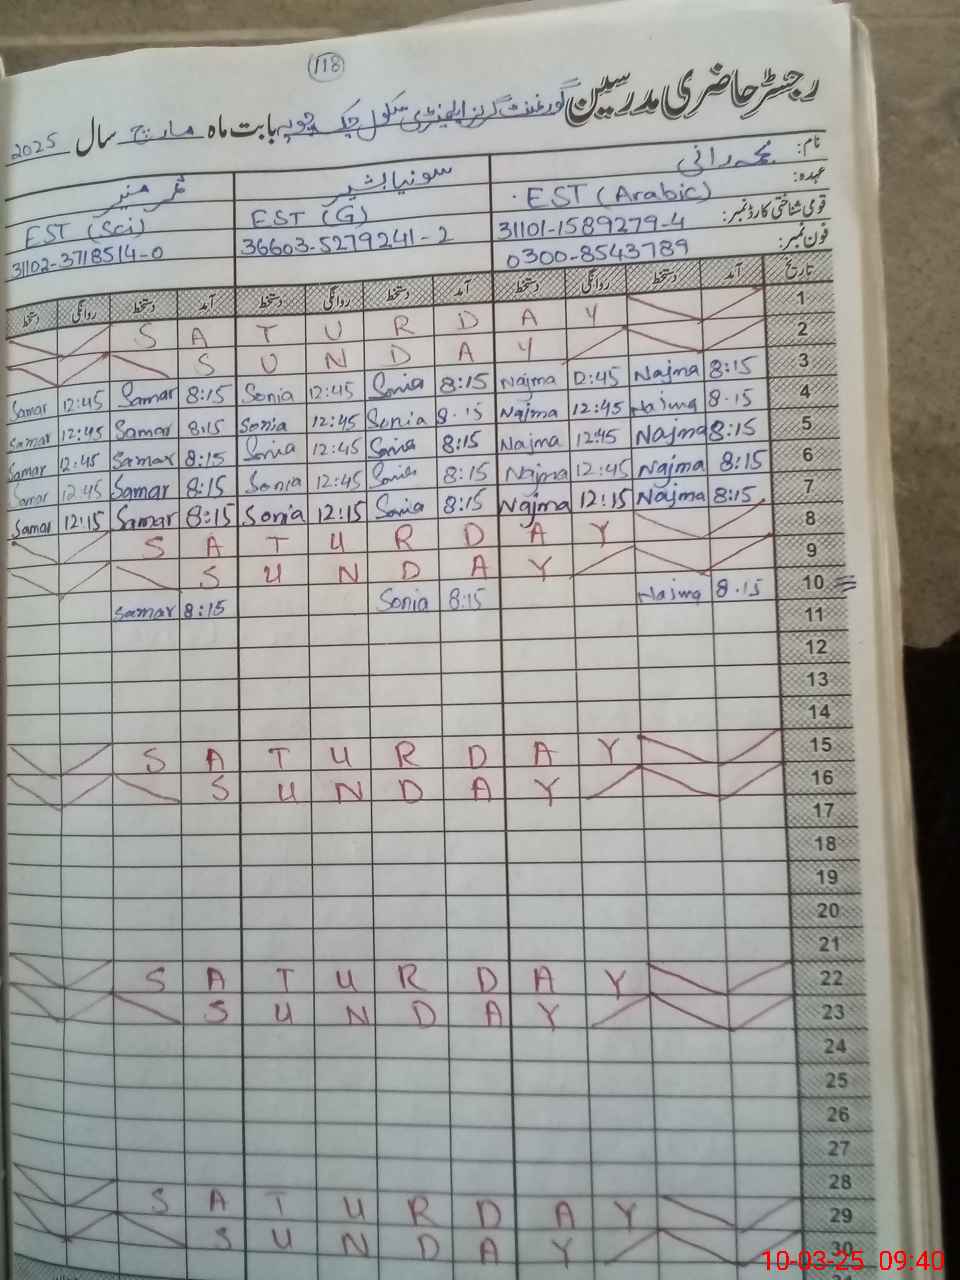 118
رجسٹر حاضری مدرسین گورنمنٹ گرلز ایلیمنٹری سکول چک بابت ماہ مارچ سال 2025
نام: نجمہ رانی سونیا بشیر ثمر منیر
عہدہ: EST (Arabic) EST (G) EST (Sci)
قومی شناختی کارڈ نمبر: 31101-1589279-4 36603-5279241-2 31102-3718514-0
فون نمبر: 0300-8543789
تاریخ آمد دستخط روانگی دستخط آمد دستخط روانگی دستخط آمد دستخط روانگی دستخط
S A T U R D A Y 1
S U N D A Y 2
Samar 12:45 Samar 8:15 Sonia 12:45 Sonia 8:15 Najma 12:45 Najma 8:15 3
Samar 12:45 Samar 8:15 Sonia 12:45 Sonia 8.15 Najma 12:45 Najma 8.15 4
Samar 12:45 Samar 8:15 Sonia 12:45 Sonia 8:15 Najma 12:45 Najma 8:15 5
Samar 12:45 Samar 8:15 Sonia 12:45 Sonia 8:15 Najma 12:45 Najma 8:15 6
Samar 12:15 Samar 8:15 Sonia 12:15 Sonia 8:15 Najma 12:15 Najma 8:15 7
S A T U R D A Y 8
S U N D A Y 9
Samar 8:15 Sonia 8:15 Najma 8.15 10
11
12
13
14
S A T U R D A Y 15
S U N D A Y 16
17
18
19
20
21
S A T U R D A Y 22
S U N D A Y 23
24
25
26
27
28
S A T U R D A Y 29
S U N D A Y 30
10-03-25 09:40